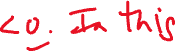 <0. In this